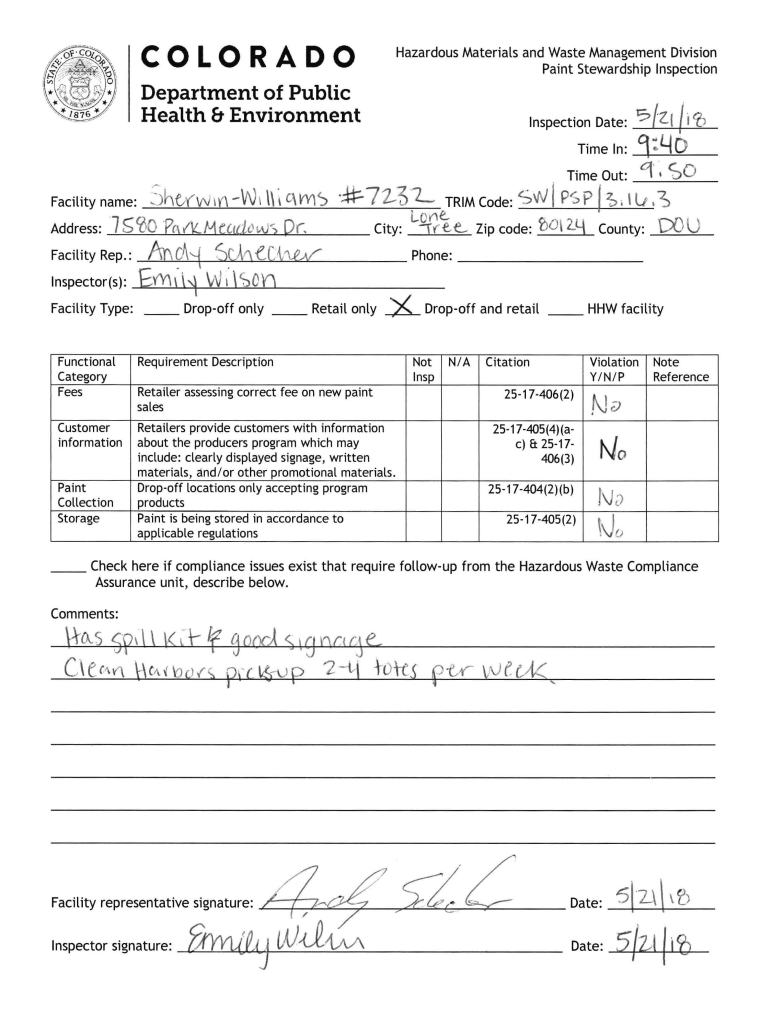 STATE OF COLORADO
1876
COLORADO
Department of Public
Health & Environment
Hazardous Materials and Waste Management Division
Paint Stewardship Inspection
Inspection Date: 5/21/18
Time In: 9:40
Time Out: 9:50
Facility name: Sherwin-Williams #7232 TRIM Code: SW/PSP/3.14.3
Address: 7580 Park Meadows Dr. City: Lone Tree Zip code: 80124 County: DOU
Facility Rep.: Andy Schecher Phone:
Inspector(s): Emily Wilson
Facility Type: Drop-off only Retail only X Drop-off and retail HHW facility
Functional Category Requirement Description Not Insp N/A Citation Violation Y/N/P Note Reference
Fees Retailer assessing correct fee on new paint sales 25-17-406(2) No
Customer information Retailers provide customers with information about the producers program which may include: clearly displayed signage, written materials, and/or other promotional materials. 25-17-405(4)(a-c) & 25-17-406(3) No
Paint Collection Drop-off locations only accepting program products 25-17-404(2)(b) No
Storage Paint is being stored in accordance to applicable regulations 25-17-405(2) No
Check here if compliance issues exist that require follow-up from the Hazardous Waste Compliance
Assurance unit, describe below.
Comments:
Has spill kit & good signage
Clean Harbors pickup 2-4 totes per week
Facility representative signature: Andy Schecher Date: 5/21/18
Inspector signature: Emily Wilson Date: 5/21/18